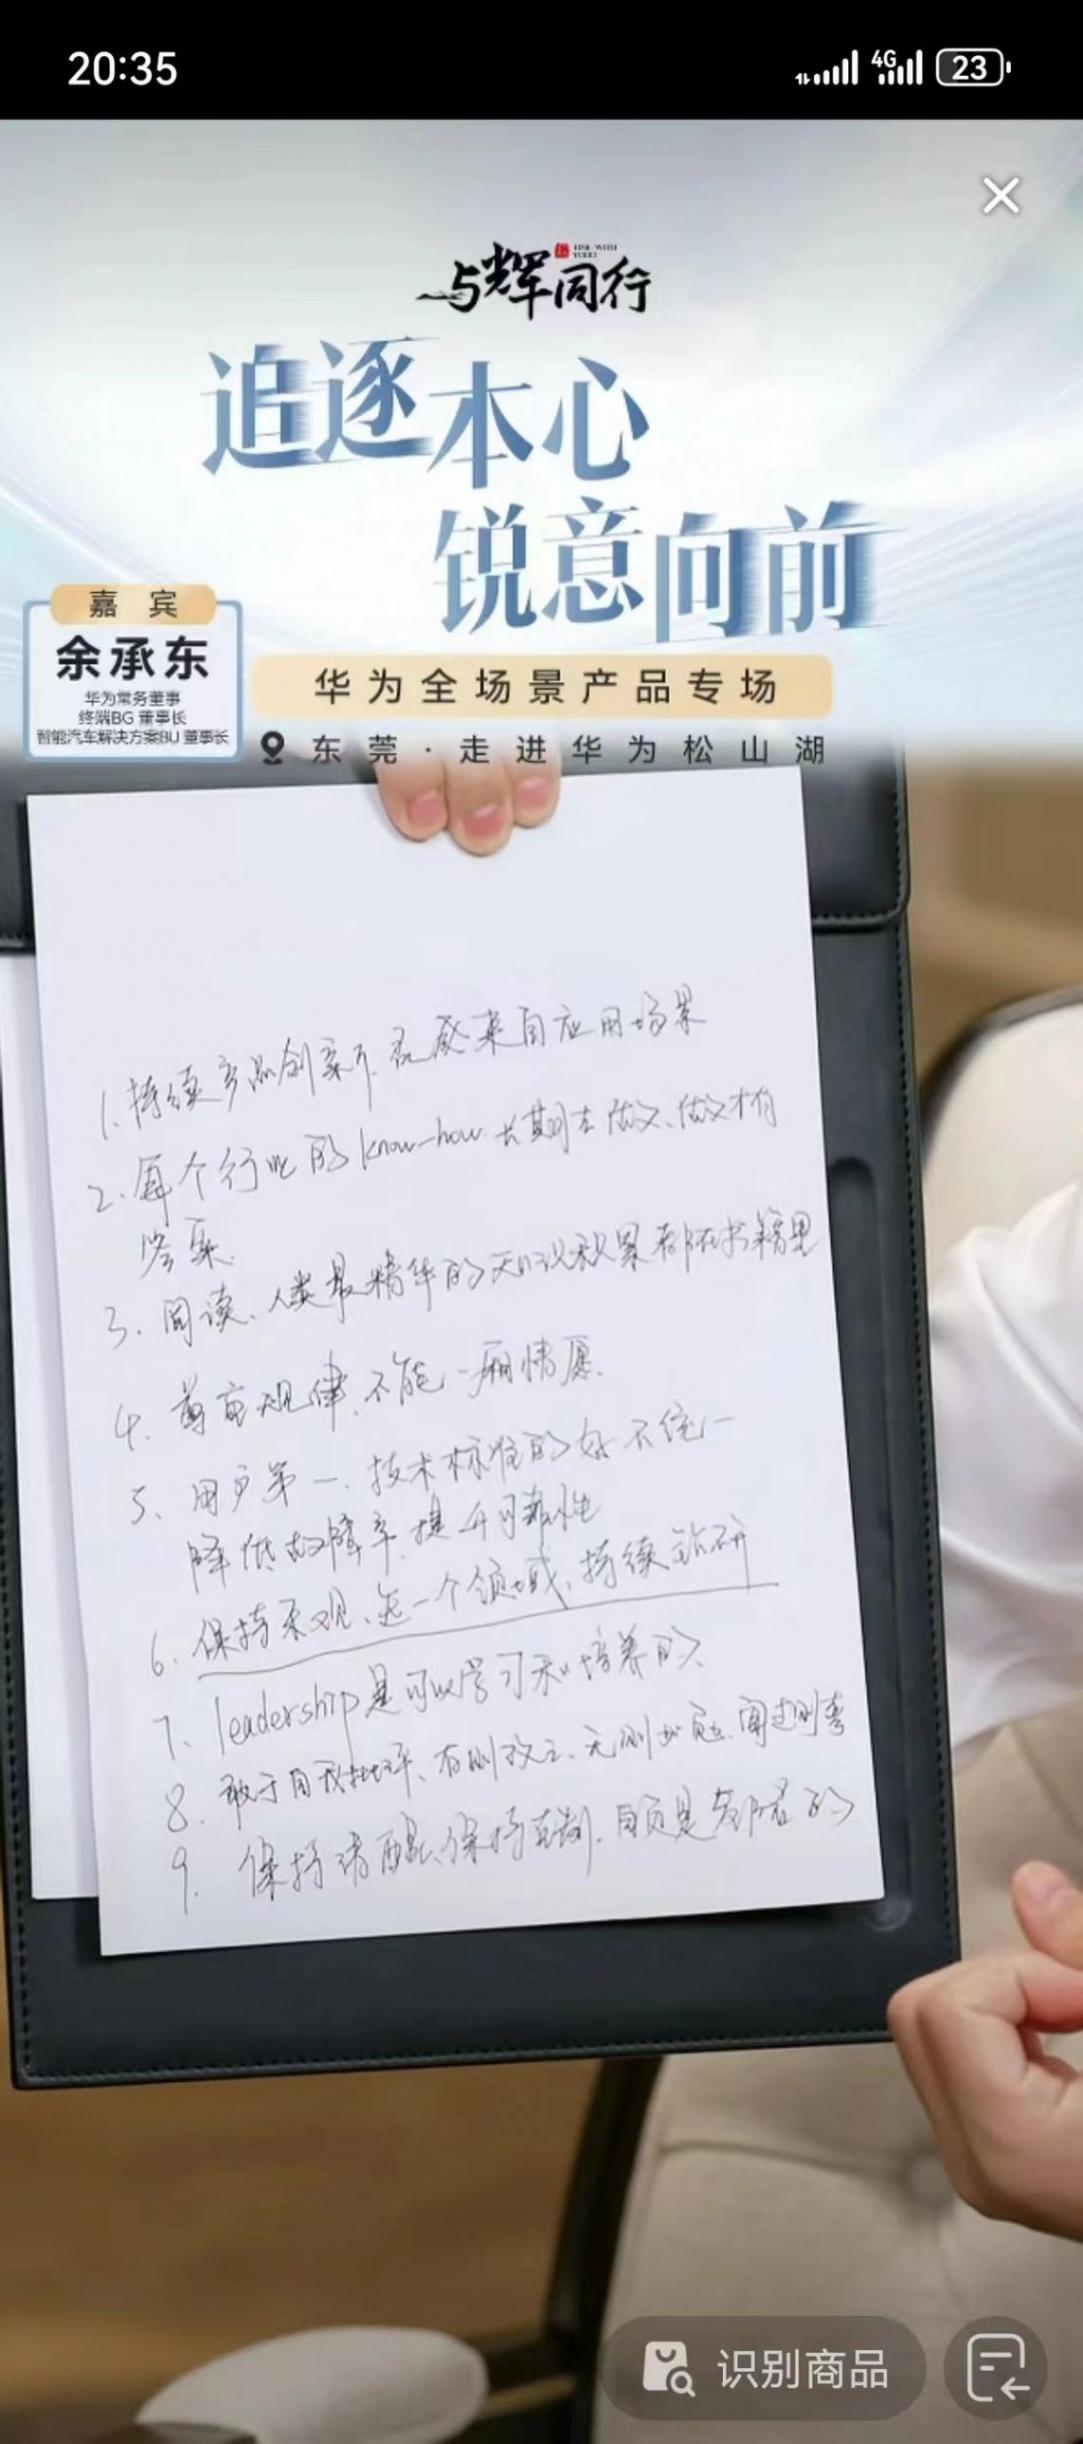 20:35
4G
23
与辉同行
追逐本心
锐意向前
嘉宾
余承东
华为常务董事
终端BG 董事长
智能汽车解决方案BU 董事长
华为全场景产品专场
东莞·走进华为松山湖
1. 持续产品创新,灵感来自应用场景
2. 每个行业的 know-how. 长期去做、做才有
答案.
3. 阅读、人类最精华的知识积累都在书籍里
4. 尊重规律,不能一厢情愿.
5. 用户第一. 技术标准的 不统一
降低故障率,提升可靠性
6. 保持乐观、在一个领域,持续钻研
7. leadership是可以学习和培养的
8. 敢于自我批评、有则改之、无则加勉、闻过则喜
9. 保持清醒,保持 的
识别商品